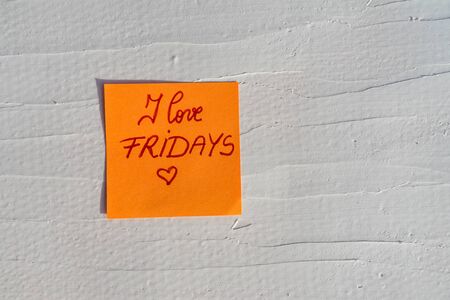 I love
FRiDAYS
♡